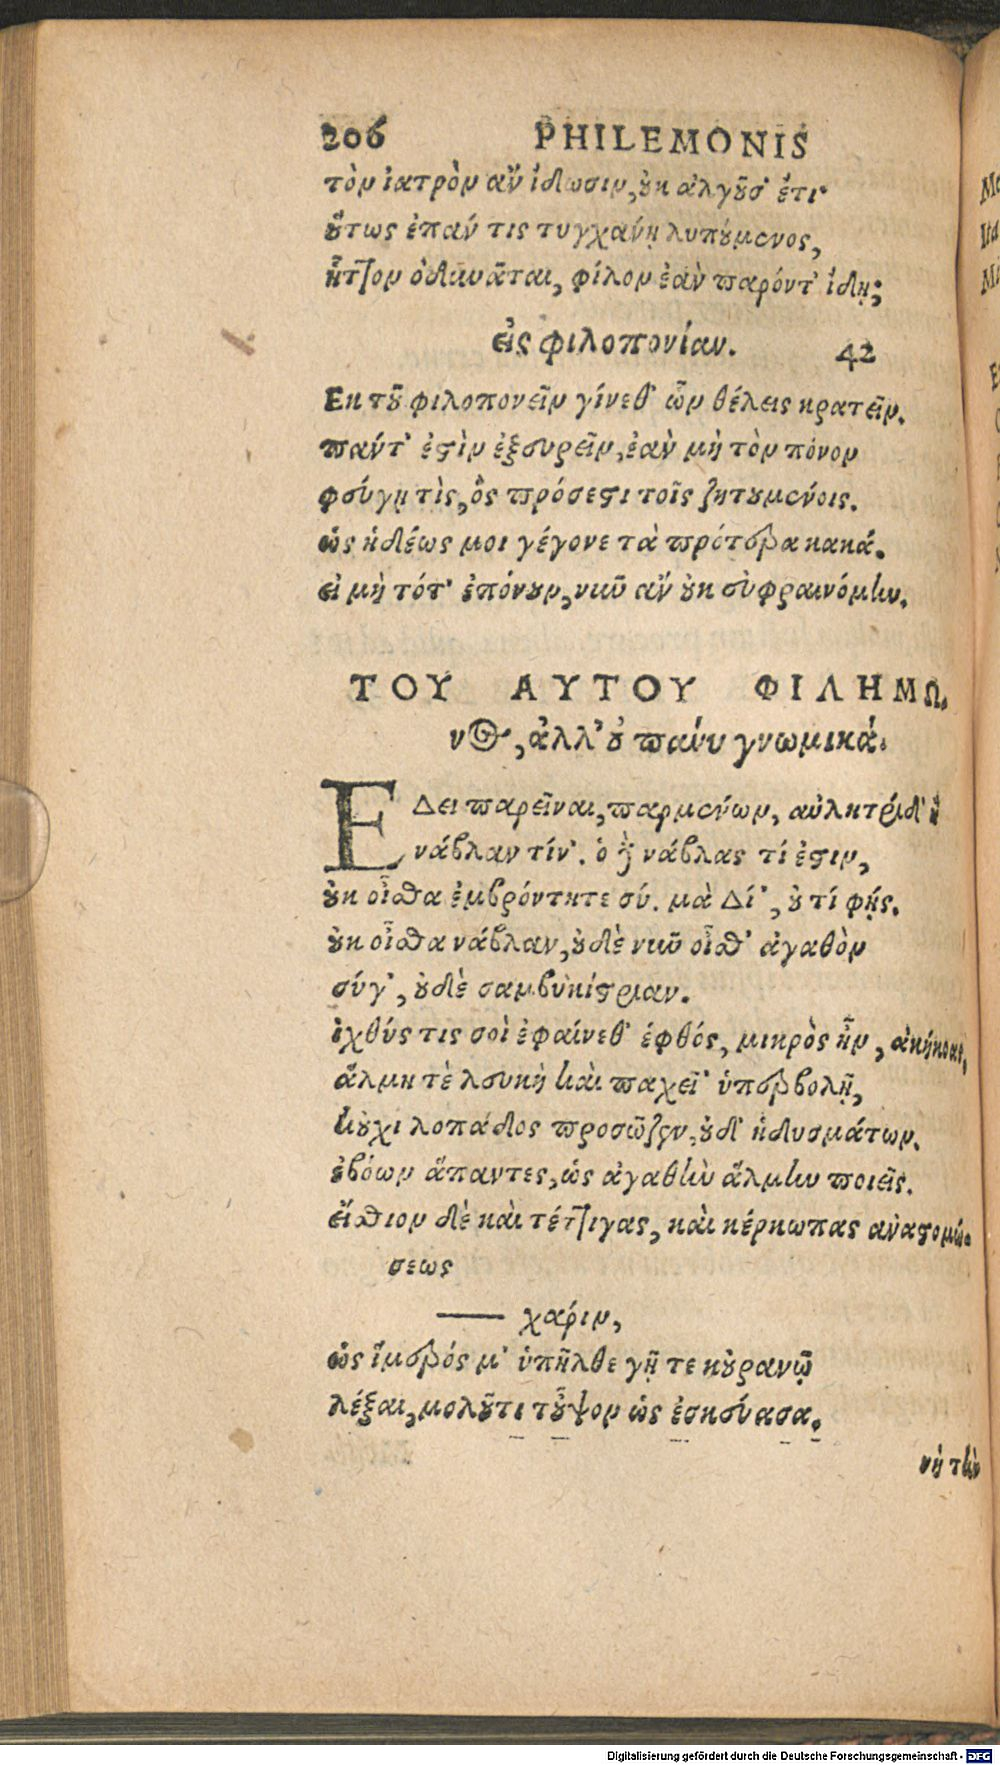 206 PHILEMONIS
τὸν ἰατρὸν ἂν ἴδωσιν, οὐκ ἀλγοῦσ' ἔτι·
οὕτως ἐπάν τις τυγχάνῃ λυπούμενος,
ἧττον ὀδυνᾶται, φίλον ἐὰν παρόντ' ἴδῃ;
εἰς φιλοπονίαν. 42
Εκ τοῦ φιλοπονεῖν γίνεθ' ὧν θέλεις κρατεῖν.
πάντ' ἐστὶν ἐξευρεῖν, ἐὰν μὴ τὸν πόνον
φεύγῃ τὶς, ὃς πρόσεστι τοῖς ζητουμένοις.
ὡς ἡδέως μοι γέγονε τὰ πρότερα κακά.
εἰ μὴ τότ' ἐπόνουν, νῦν ἂν οὐκ εὐφραινόμην.
ΤΟΥ ΑΥΤΟΥ ΦΙΛΗΜΩ.
νος, ἀλλ' οὐ πάνυ γνωμικά.
ΕΔει παρεῖναι, παρμένων, αὐλητρίδ' ἢ
νάβλαν τίν'. ὁ δὲ νάβλας τί ἐστιν,
οὐκ οἶσθα ἐμβρόντητε σύ. μὰ Δί', οὐ τί φῄς.
οὐκ οἶσθα νάβλαν, οὐδὲ νῦν οἶσθ' ἀγαθὸν
σύγ', οὐδὲ σαμβυκίστριαν.
ἰχθύς τις σοὶ ἐφαίνεθ' ἑφθός, μικρὸς ἦν, ἀκήκοας,
ἅλμη τὲ λευκὴ καὶ παχεῖ' ὑπερβολῇ,
κοὐχι λοπάδος προσῶζεν, οὐδ' ἡδυσμάτων.
ἐβόων ἅπαντες, ὡς ἀγαθὴν ἅλμην ποιεῖς.
εἴσθιον δὲ καὶ τέττιγας, καὶ κέρκωπας ἀναστομώ-
σεως
—— χάριν,
ὡς ἵμερός μ' ὑπῆλθε γῇ τε κοὐρανῷ
λέξαι, μολοῦτι τοὖψον ὡς ἐσκεύασα.
νὴ τὴν
Digitalisierung gefördert durch die Deutsche Forschungsgemeinschaft - DFG